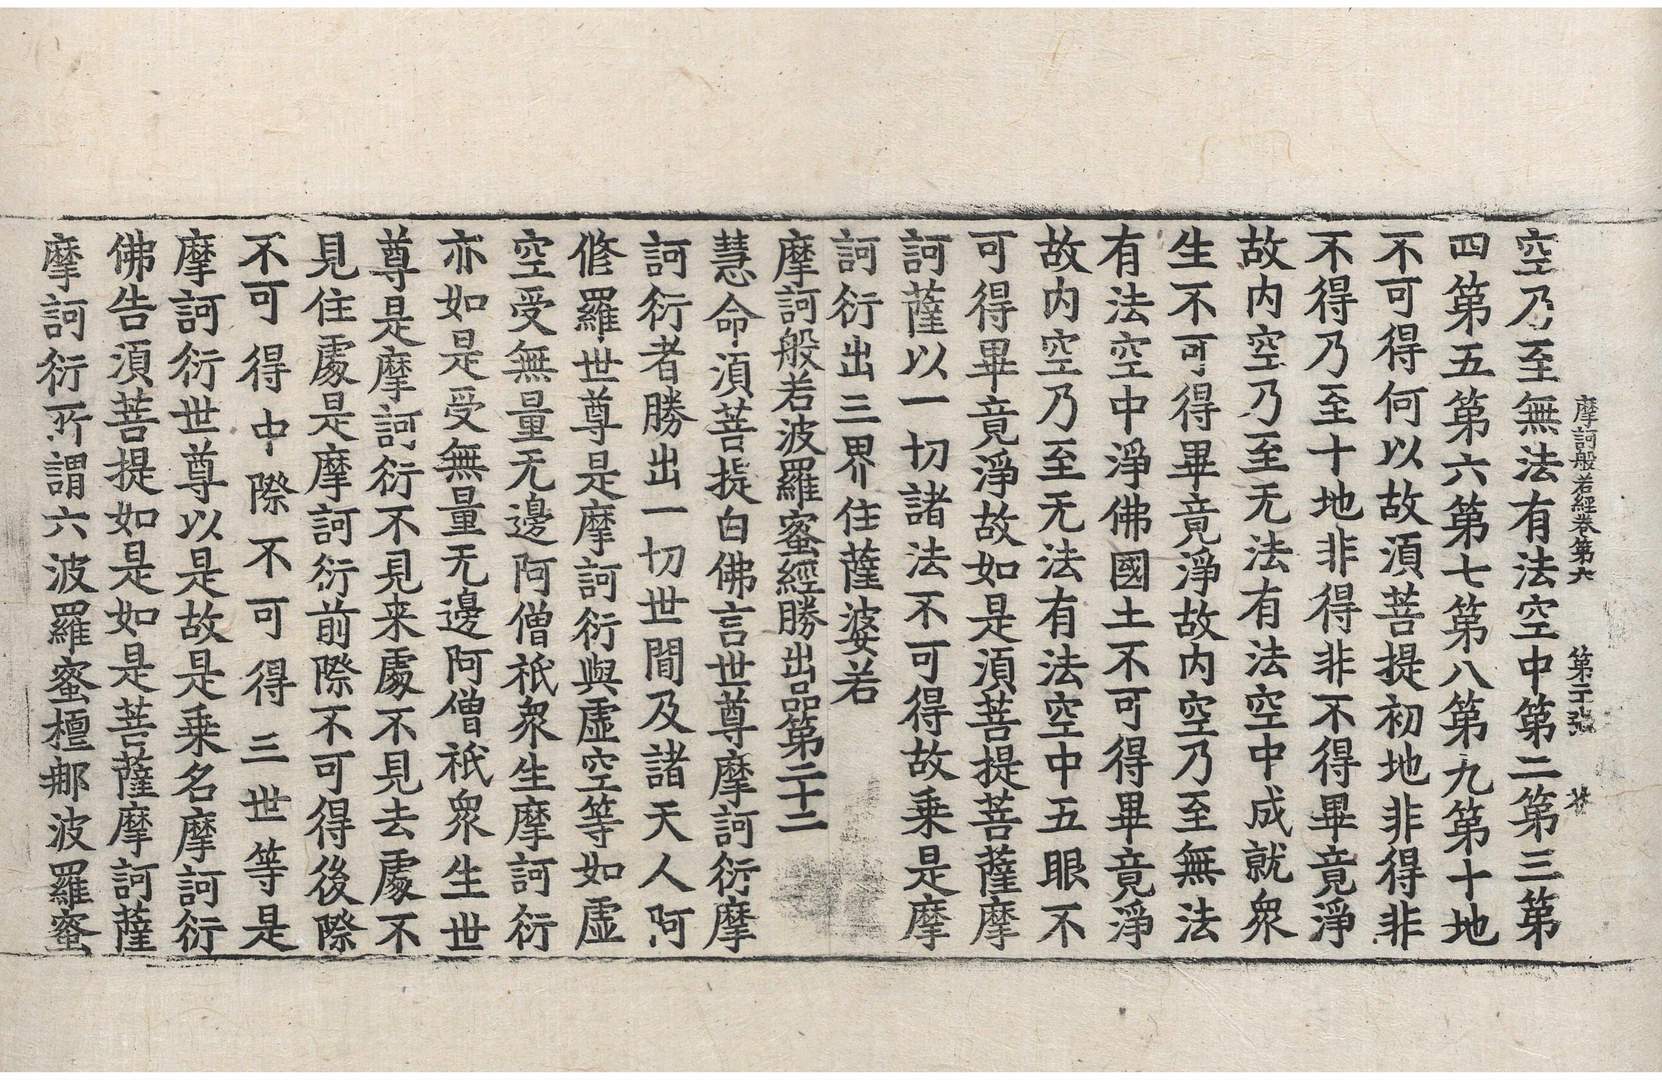 摩訶般若經卷第六 第二十張
空乃至無法有法空中第二第三第
四第五第六第七第八第九第十地
不可得何以故湏菩提初地非得非
不得乃至十地非得非不得畢竟淨
故内空乃至无法有法空中成就衆
生不可得畢竟淨故内空乃至無法
有法空中淨佛國土不可得畢竟淨
故内空乃至无法有法空中五眼不
可得畢竟淨故如是湏菩提菩薩摩
訶薩以一切諸法不可得故乗是摩
訶衍出三界住薩婆若
摩訶般若波羅蜜經勝出品第二十二
慧命湏菩提白佛言世尊摩訶衍摩
訶衍者勝出一切世間及諸天人阿
修羅世尊是摩訶衍與虚空等如虚
空受無量无邊阿僧祇衆生摩訶衍
亦如是受無量无邊阿僧祇衆生世
尊是摩訶衍不見来處不見去處不
見住處是摩訶衍前際不可得後際
不可得中際不可得三世等是
摩訶衍世尊以是故是乗名摩訶衍
佛告湏菩提如是如是菩薩摩訶薩
摩訶衍所謂六波羅蜜檀那波羅蜜